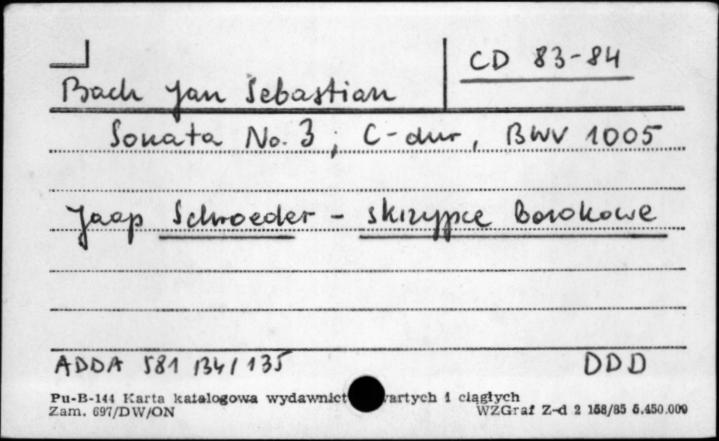 CD 83-84
Bach Jan Sebastian
Sonata No. 3, C-dur, BWV 1005
Jaap Schroeder - skrzypce barokowe
ADDA 581 134/135 DDD
Pu-B-144 Karta katalogowa wydawnict artych i ciągłych
Zam. 697/DW/ON WZGraf Z-d 2 158/85 5.450.000